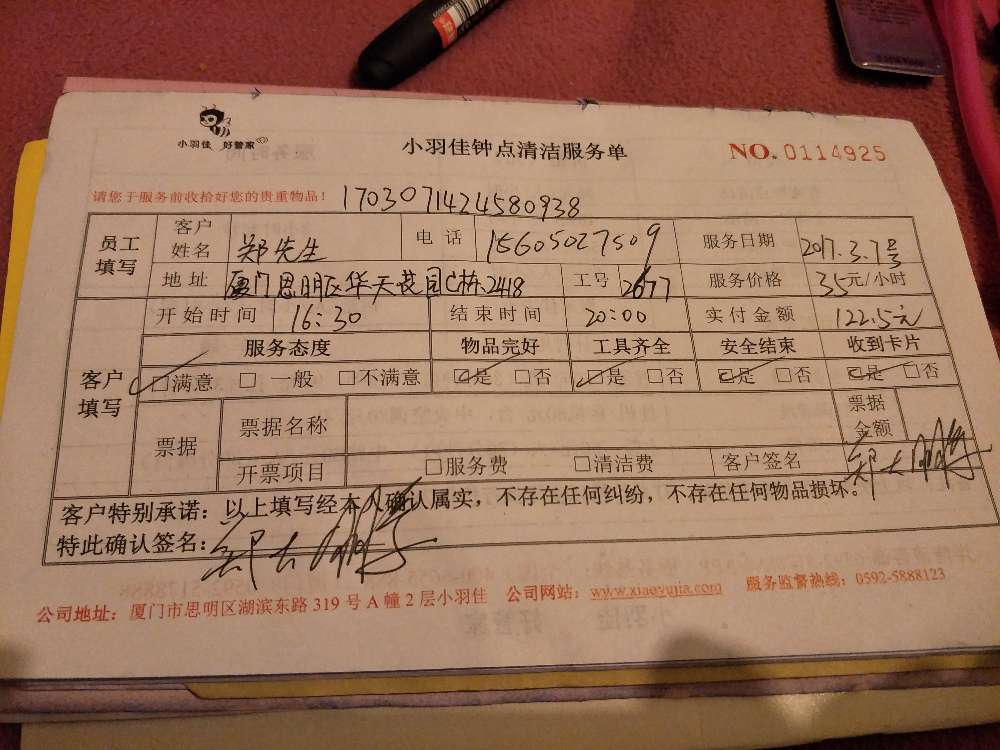 小羽佳 好管家
小羽佳钟点清洁服务单
NO. 0114925
请您于服务前收拾好您的贵重物品! 1703071424580938
员工填写 客户姓名 郑先生 电话 15605027509 服务日期 2017.3.7号
地址 厦门思明区华天花园C栋2418 工号 2677 服务价格 35元/小时
客户填写 开始时间 16:30 结束时间 20:00 实付金额 122.5元
服务态度 物品完好 工具齐全 安全结束 收到卡片
☑满意 □一般 □不满意 ☑是 □否 ☑是 □否 ☑是 □否 ☑是 □否
票据 票据名称 票据金额
开票项目 □服务费 □清洁费 客户签名
客户特别承诺：以上填写经本人确认属实，不存在任何纠纷，不存在任何物品损坏。
特此确认签名：
公司地址：厦门市思明区湖滨东路 319 号 A 幢 2 层小羽佳 公司网站：www.xiaoyujia.com 服务监督热线：0592-5888123